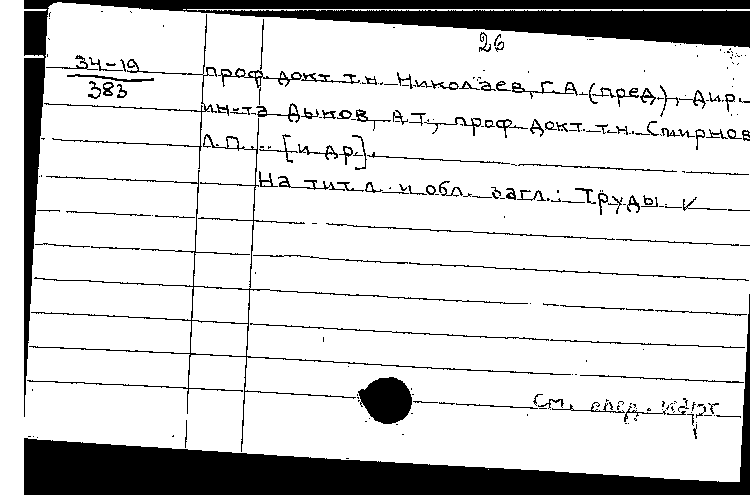 26
34-19
383
проф. докт. т.н. Николаев, Г.А. (пред.), дир.
ин-та Дыков, А.Т., проф. докт. т.н. Смирнов
Л.П. ... [и др.].
На тит. л. и обл. загл.: Труды ✓
См. след. карт